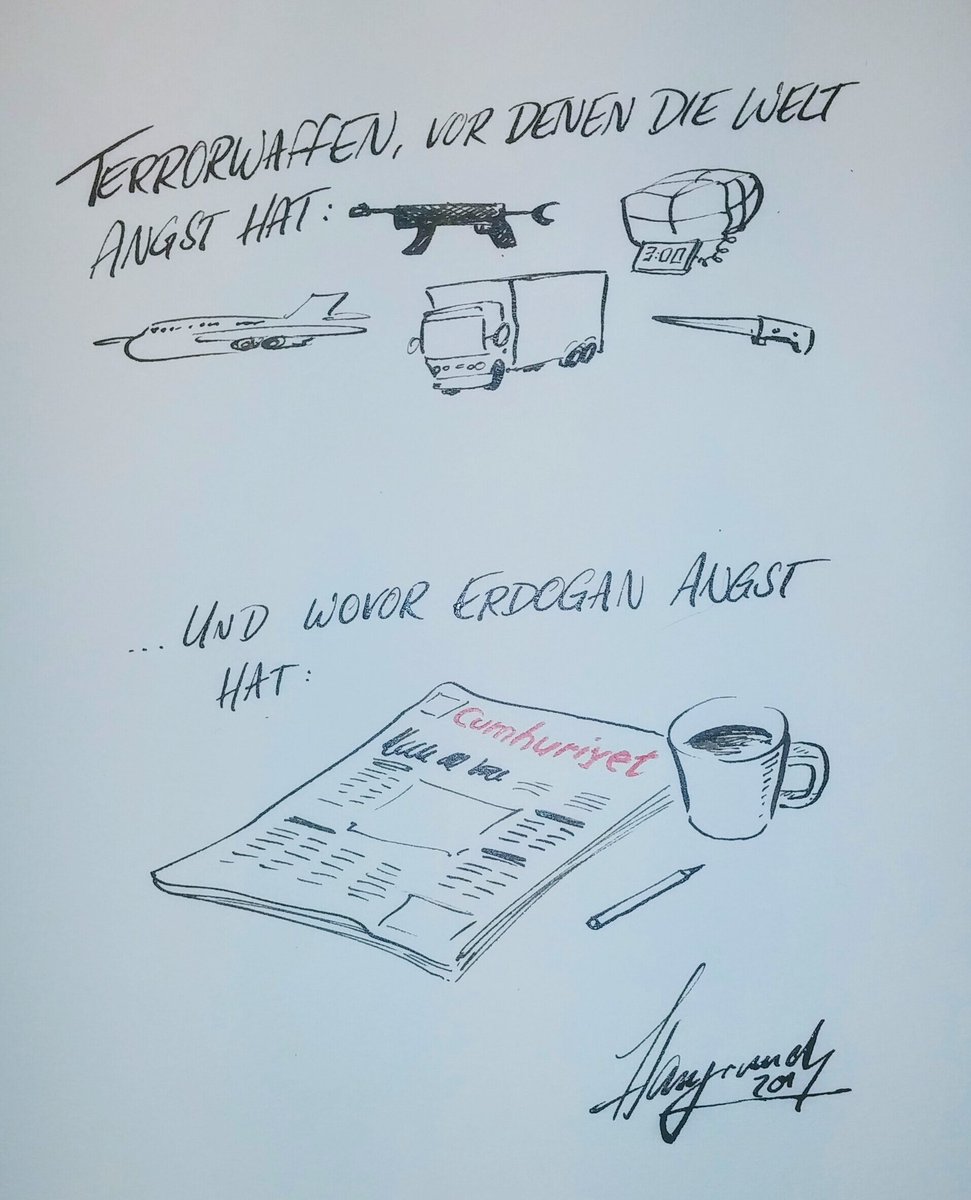 TERRORWAFFEN, VOR DENEN DIE WELT
ANGST HAT:
3:00
... UND WOVOR ERDOGAN ANGST
HAT:
Cumhuriyet